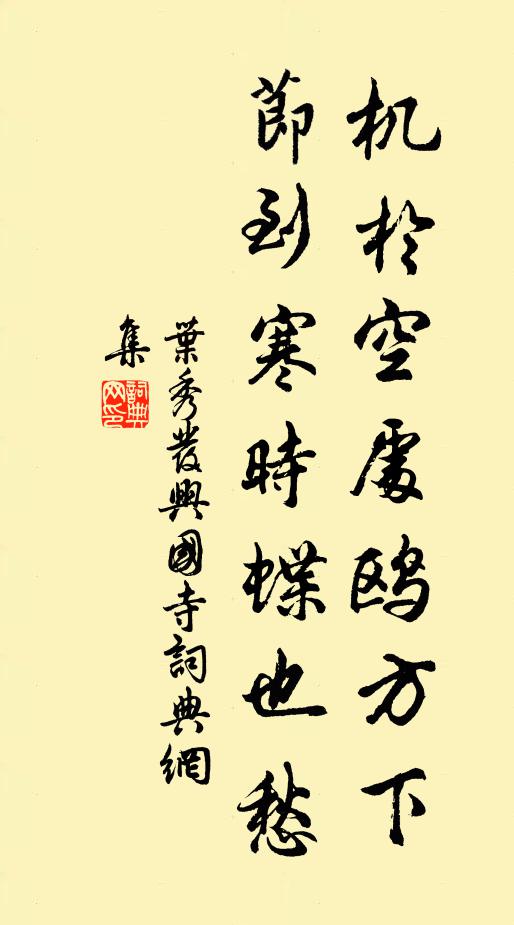 机於空處鸥方下
節到寒時蝶也愁
葉秀發興國寺詞典網
集
詞典
网印